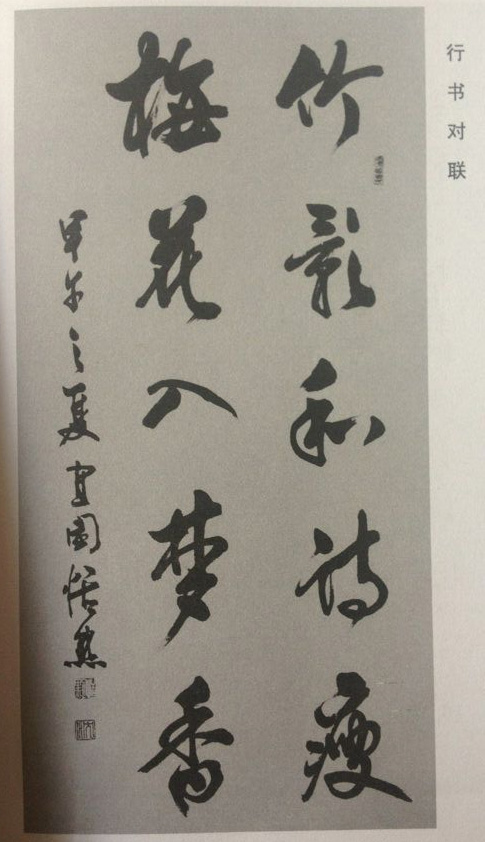 行书对联
竹影和诗瘦
梅花入梦香
甲年之夏